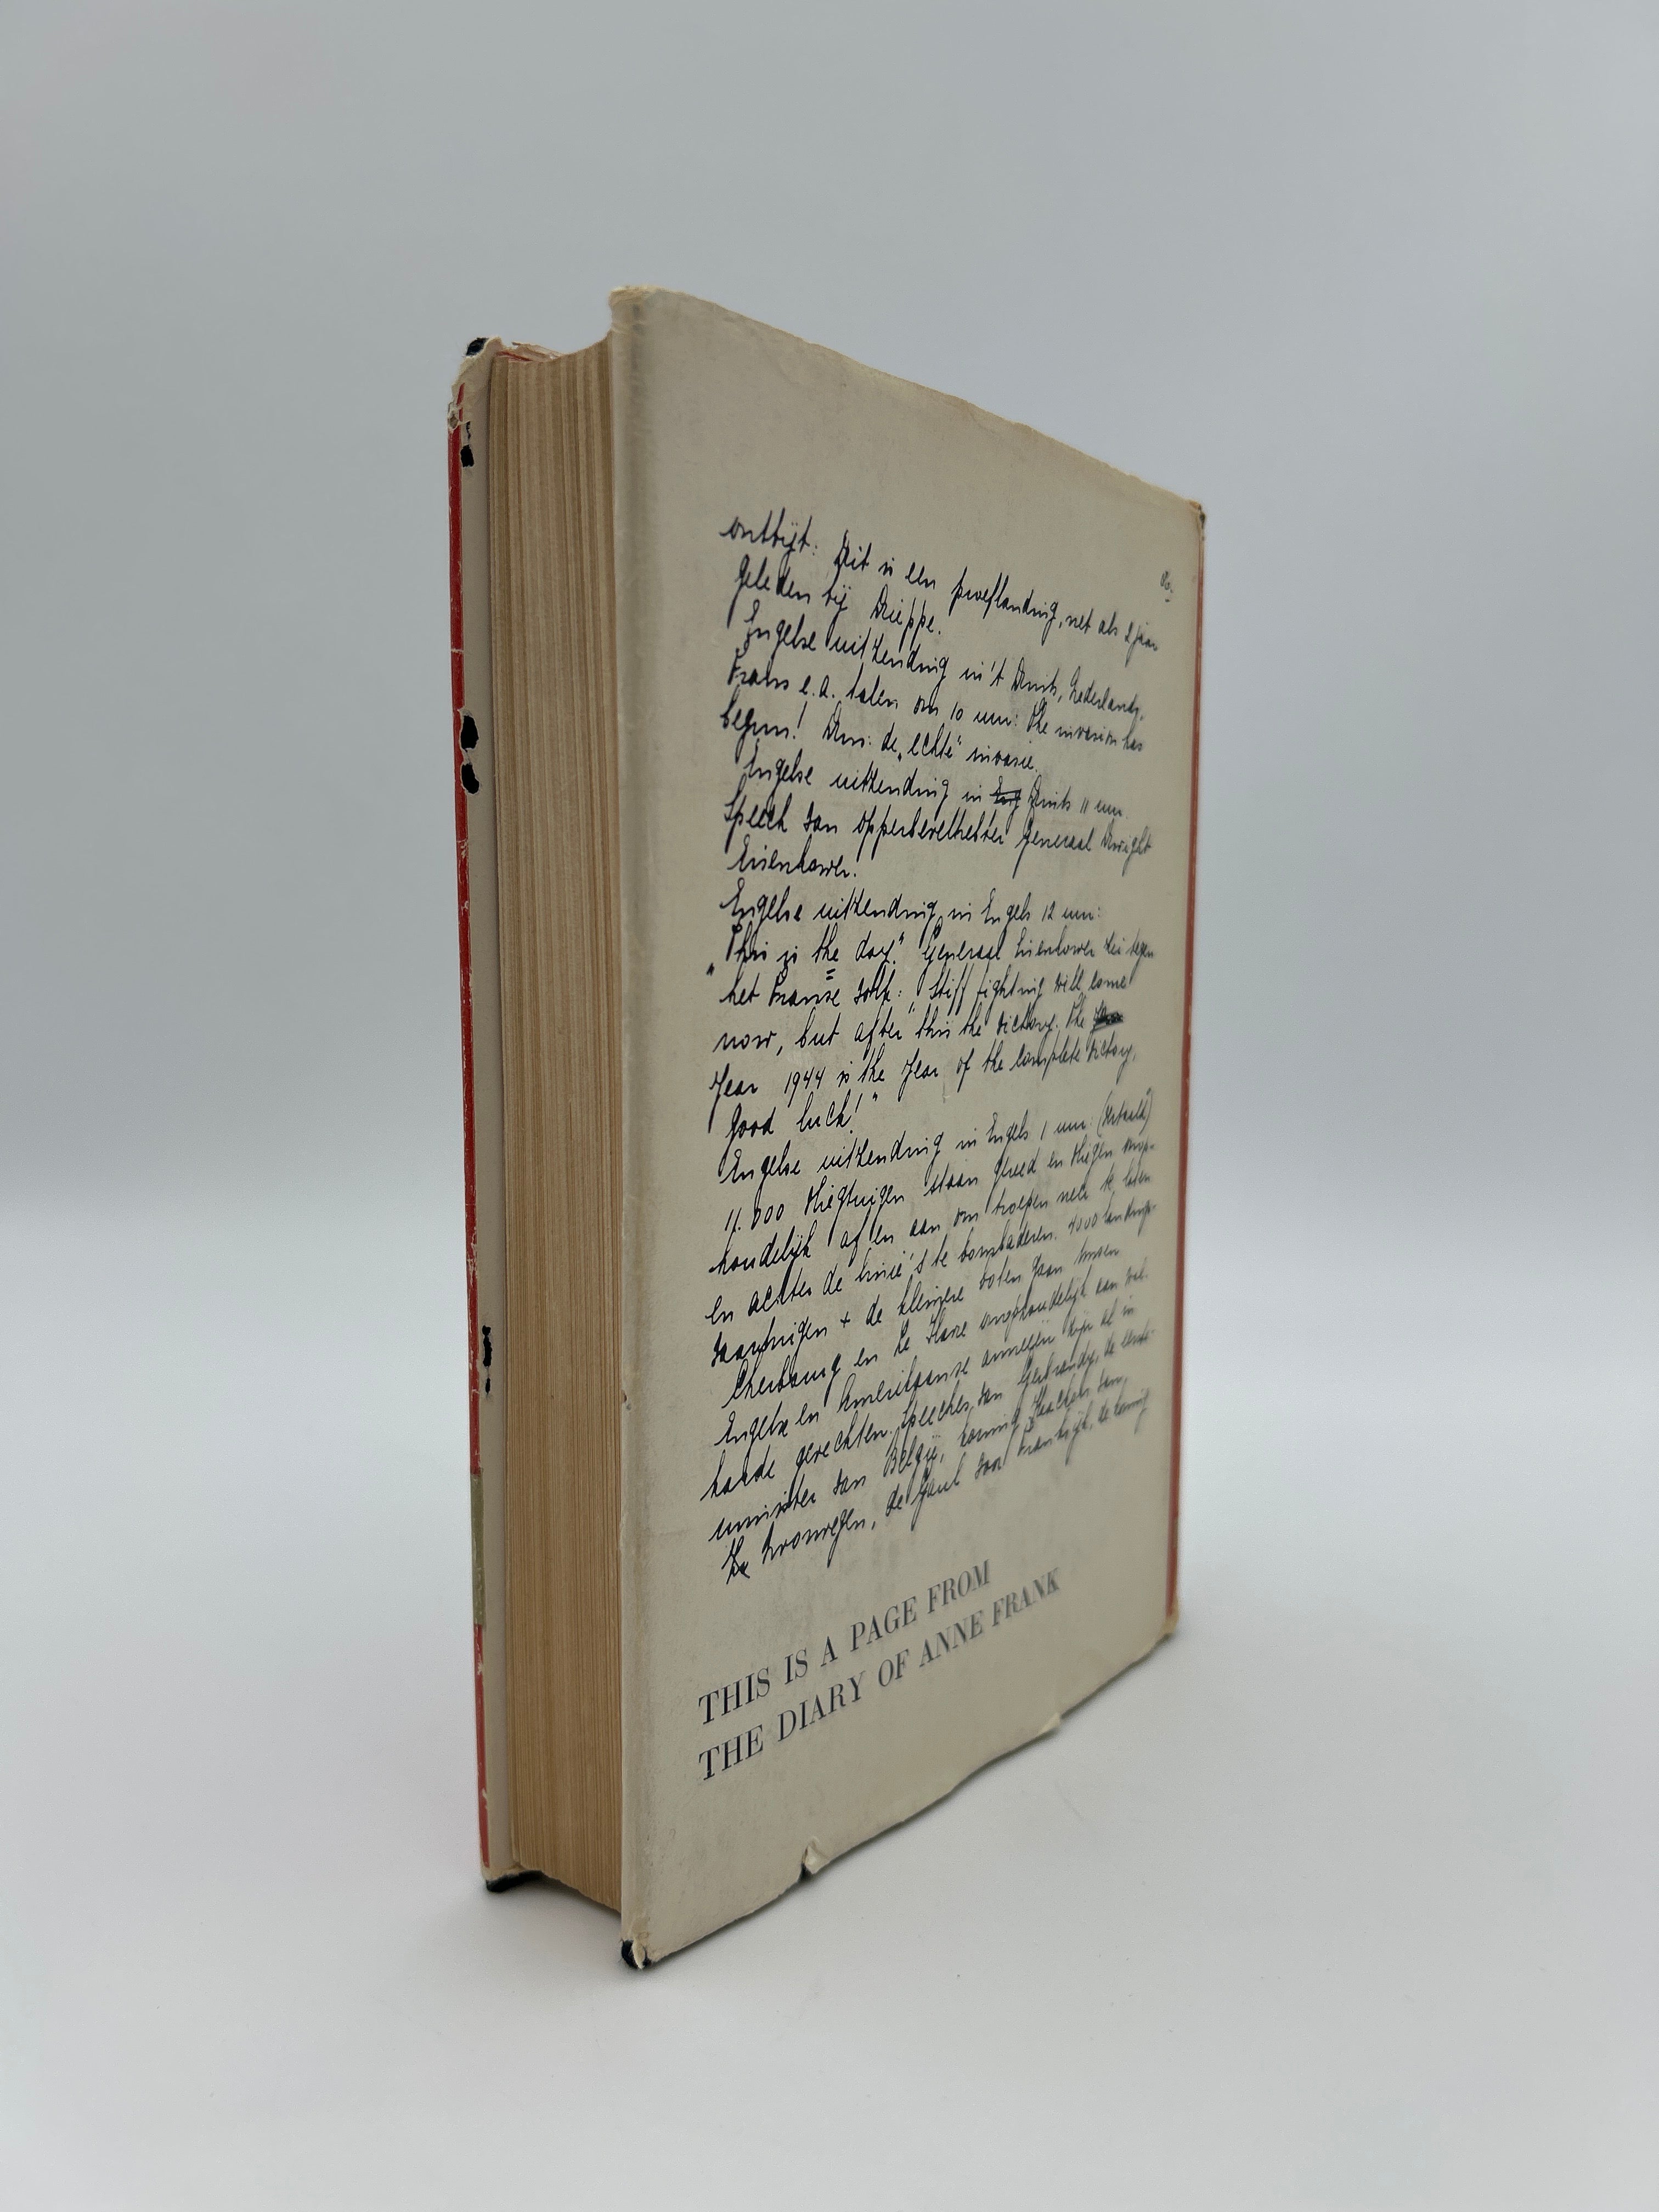 ontbijt: Dit is een proeflanding, net als 2 jaar
geleden bij Dieppe.
Engelse uitzending in 't Duits, Nederlands,
Frans e.a. talen om 10 uur: The invasion has
begun! Dus: de „echte" invasie.
Engelse uitzending in Eng Duits 11 uur.
Speech van opperbevelhebber Generaal Dwight
Eisenhower.
Engelse uitzending in Engels 12 uur:
„This is the day." Generaal Eisenhower zei tegen
het Franse volk: "Stiff fighting will come
now, but after this the victory. The
Year 1944 is the Year of the complete victory,
Good luck!"
Engelse uitzending in Engels 1 uur: (Vertaald)
11.000 vliegtuigen staan gereed en vliegen onop-
houdelijk af en aan om troepen neer te laten
en achter de linie's te bombaderen. 4000 landings-
vaartuigen + de kleinere boten gaan tussen
Cherbourg en Le Havre onophoudelijk aan wal.
Engelse en Amerikaanse armeeën zijn al in
harde gevechten. Speeches van Gerbrandy, de eerste-
minister van België, koning Haakon van
Noorwegen, de Gaul van Frankrijk, de koning
THIS IS A PAGE FROM
THE DIARY OF ANNE FRANK